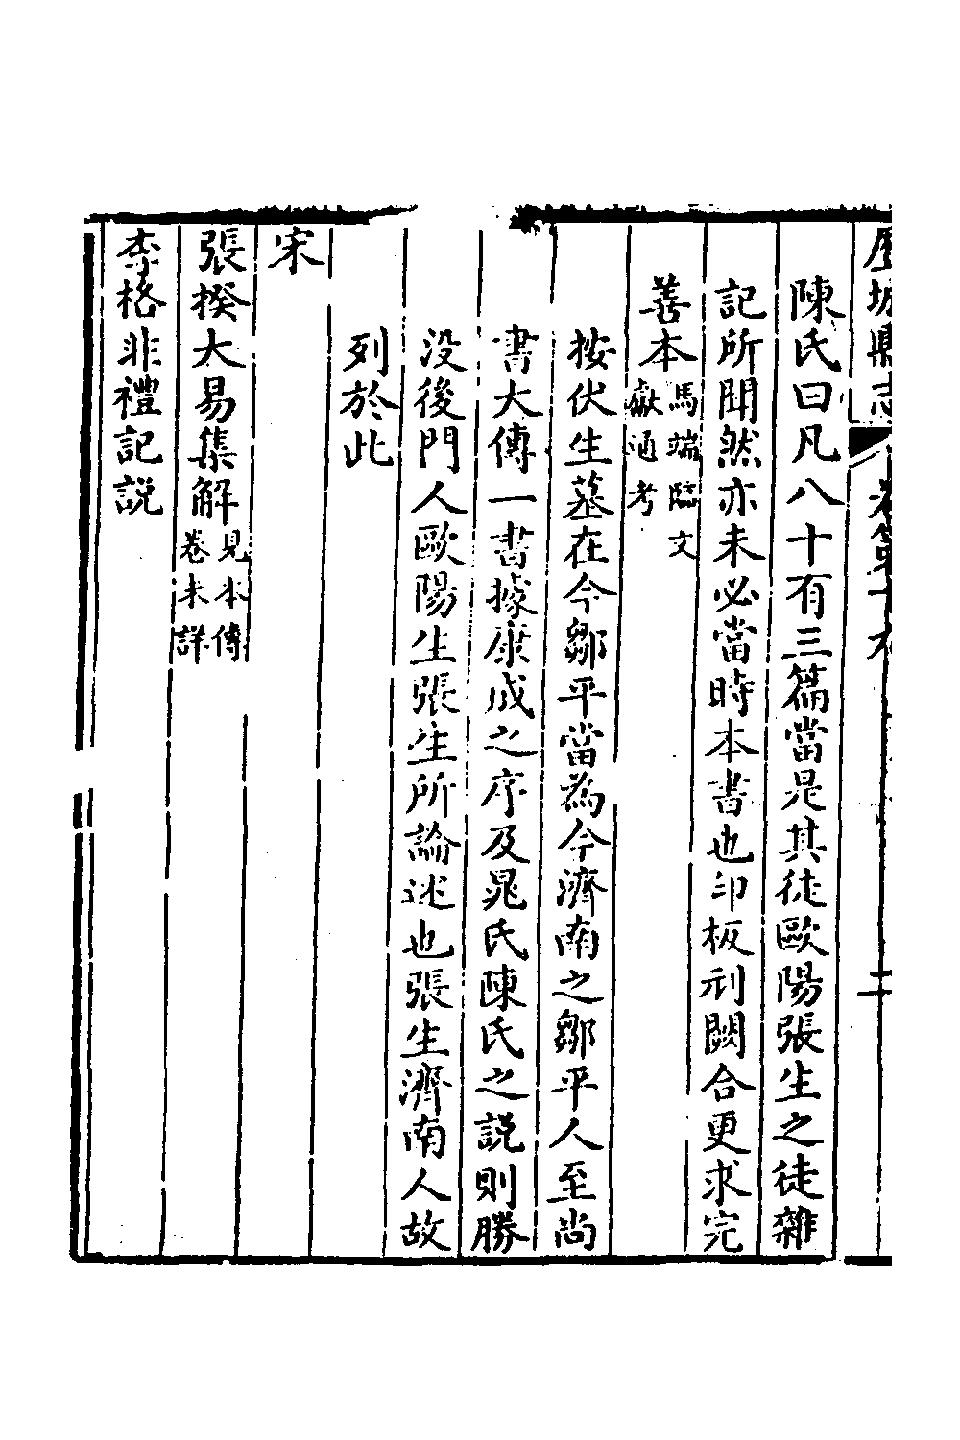 歷城縣志 卷第十九 二
陳氏曰凡八十有三篇當是其徒歐陽張生之徒雜
記所聞然亦未必當時本書也印板刓闕合更求完
善本馬端臨文獻通考
按伏生墓在今鄒平當為今濟南之鄒平人至尚
書大傳一書據康成之序及晁氏陳氏之說則勝
没後門人歐陽生張生所論述也張生濟南人故
列於此
宋
張揆大易集解見本傳卷未詳
李格非禮記說